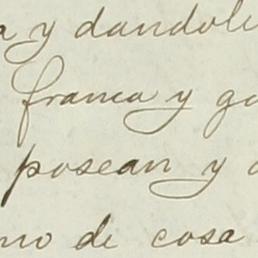 y dandole
franca y go
posean y
mo de cosa